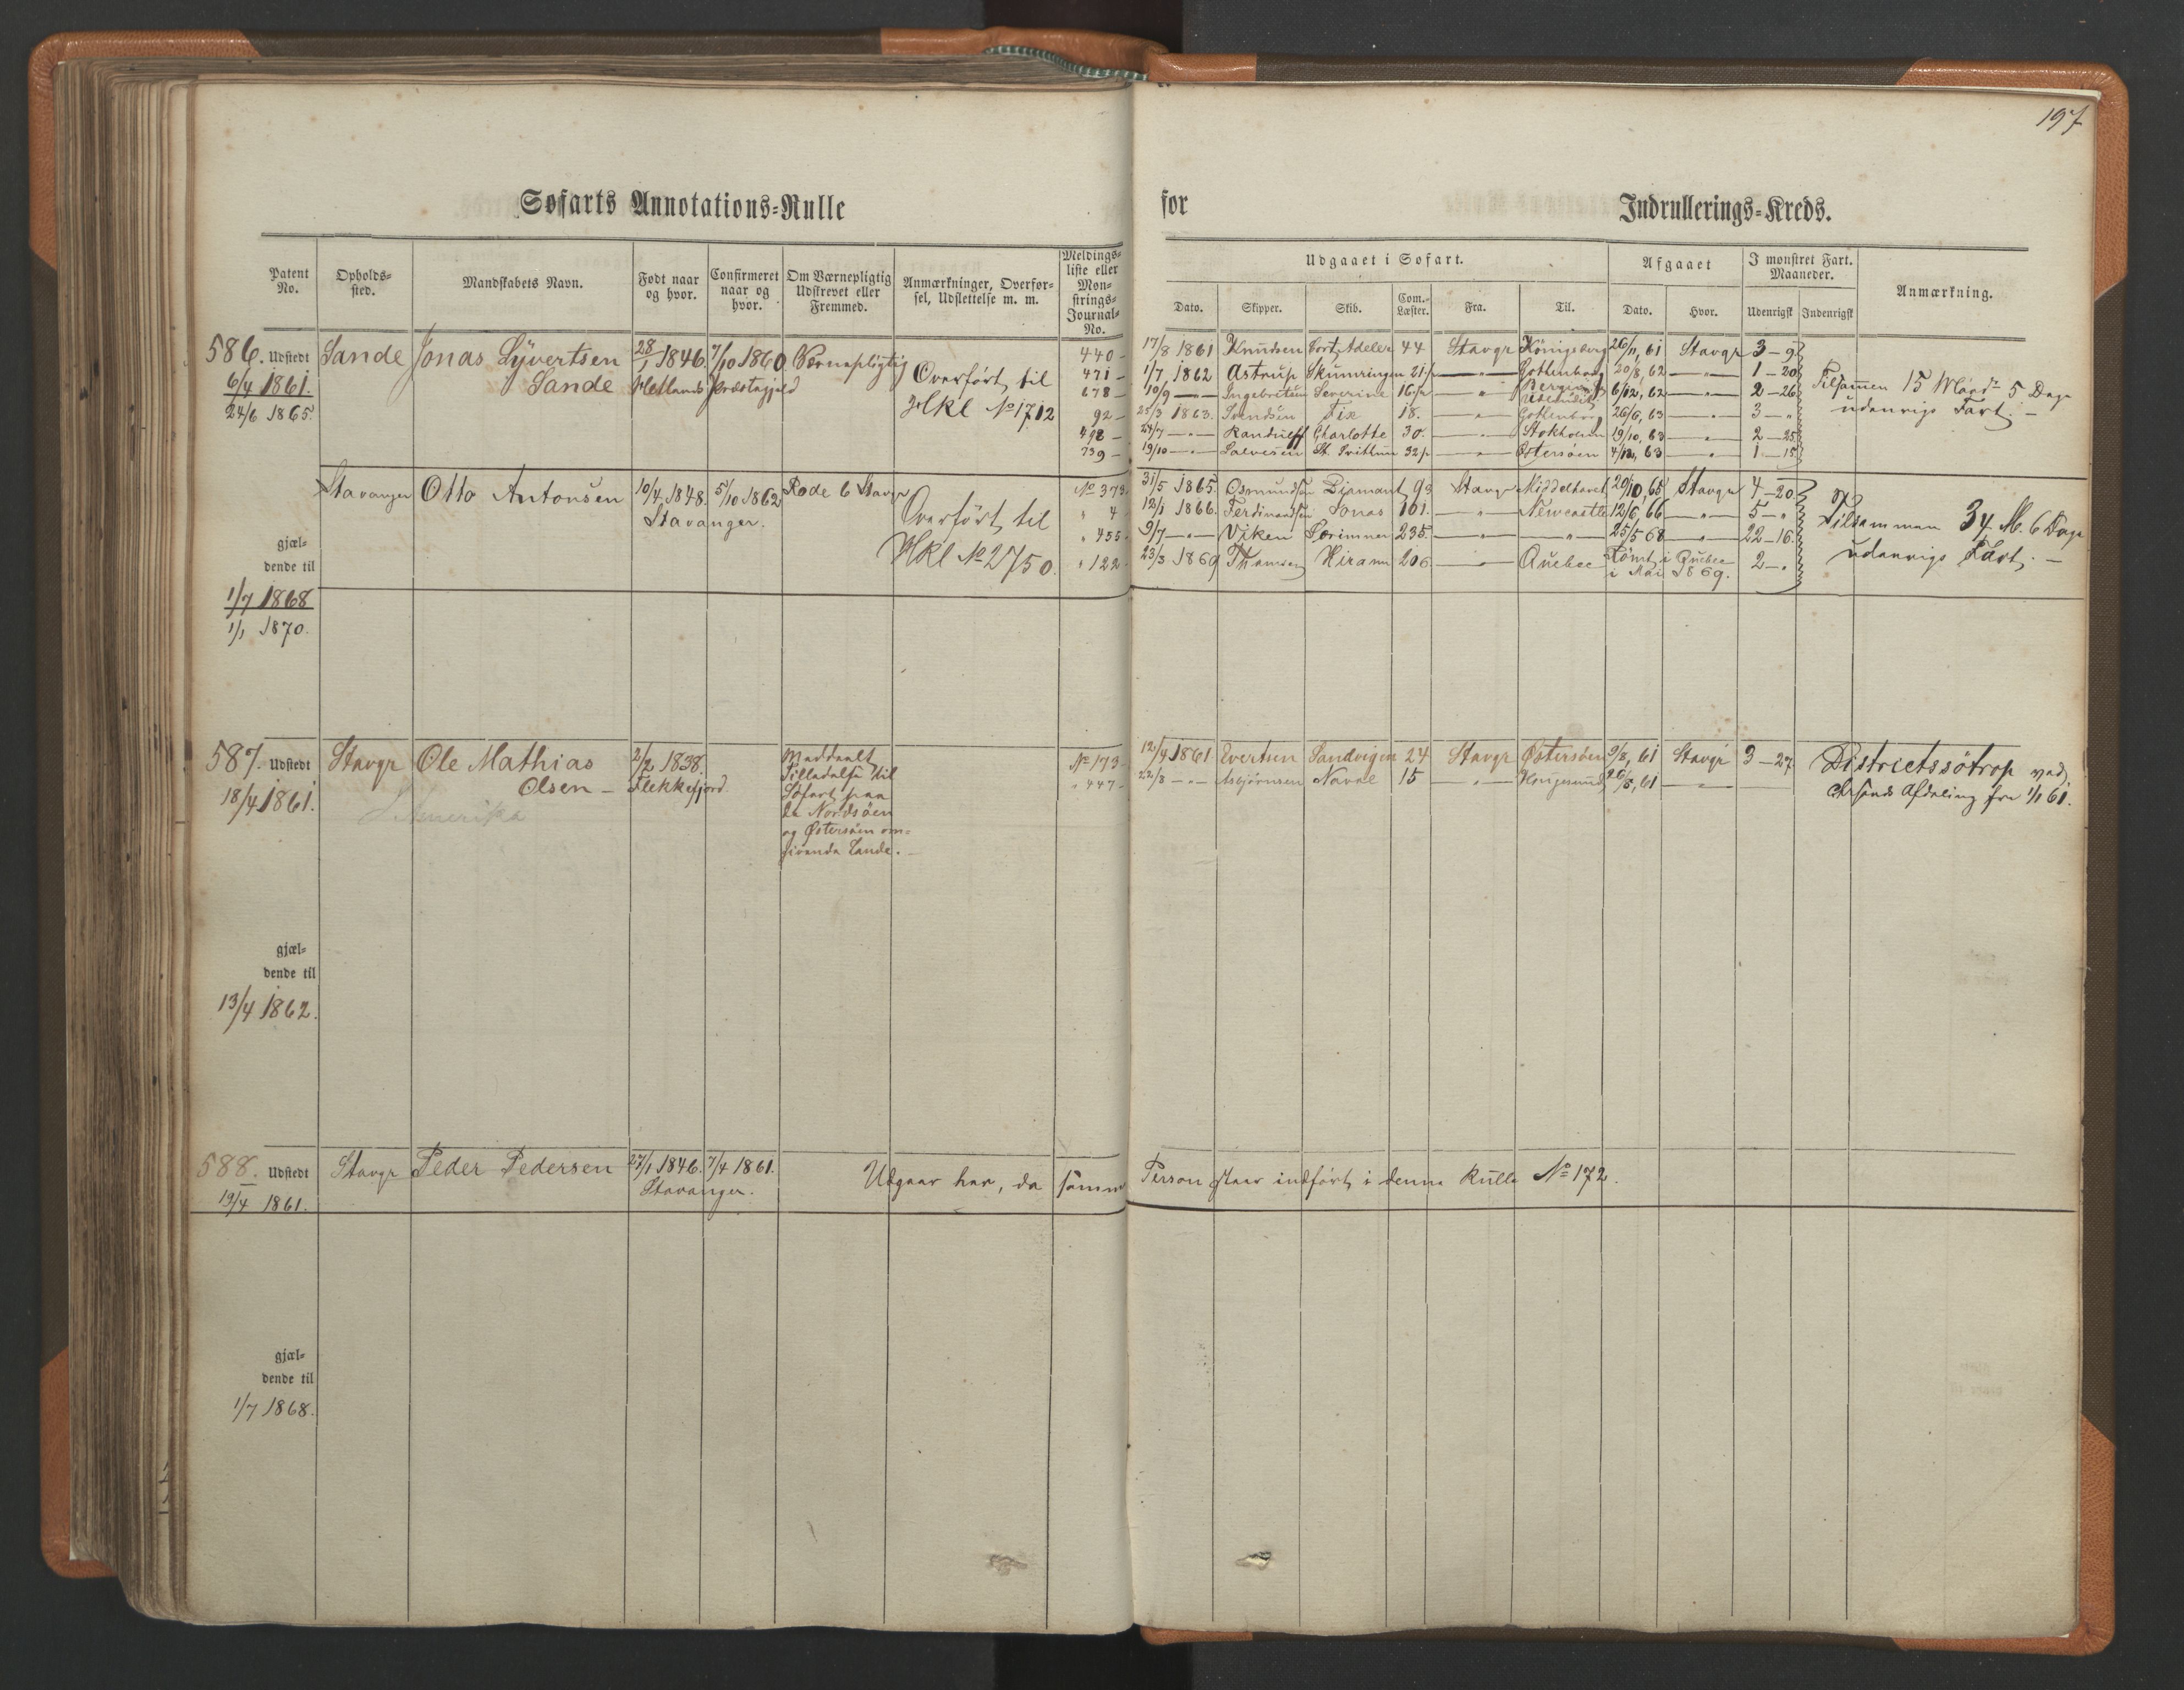 197
Søfarts Annotations-Rulle for Indrullerings-Kreds.
Patent No. Opholds-sted. Mandskabets Navn. Født naar og hvor. Confirmeret naar og hvor. Om Værnepligtig Udskrevet eller Fremmed. Anmærkninger, Overførsel, Udslettelse m. m. Meldings-liste eller Mon-strings-Journal-No.
Udgaaet i Søfart. Afgaaet I mønstret Fart. Maaneder. Anmærkning.
Dato. Skipper. Skib. Com.-Læster. Fra. Til. Dato. Hvor. Udenrigsk Indenrigsk
586. Udstedt 6/4 1861. 24/6 1865.
Sande Jonas Syvertsen Sande 28/1 1846. Hetlands Præstegjeld 7/10 1860 Værnepligtig
Overført til Hkl No 1712
440 - 17/8 1861 Knudsen Cort Adeler 44 Stavgr Königsberg 26/11, 61 Stavgr 3 - 9
471 - 1/7 1862 Astrup Skumringen 21 1/2 — " — Gottenborg 20/8, 62 — " — 1 - 20
678 - 10/9 — " — Ingebretsen Severine 16 1/2 — " — Bergen 6/12, 62 — " — 2 - 26
92 - 25/3 1863. Svendsen Fix 18. — " — Gottenborg 26/6, 63 — " — 3 - "
498 - 24/7 — " — Randulff Charlotte 30. — " — Stokholm 19/10, 63 — " — 2 - 25
739 - 19/10 — " — Salvesen St. Svithun 32 1/2 — " — Østersøen 4/12, 63 — " — 1 - 15
Tilsamen 15 Maand 5 Dage
udenrigs Fart. -
Stavanger Otto Antonsen 10/4 1848. Stavanger. 5/10 1862 Rode 6 Stavgr
Overført til Hkl No 2750.
gjæl-
dende til
1/7 1868
1/1 1870.
No 373 - 31/5 1865. Osmundsen Diamant 93 Stavgr Middelhavet 20/10, 65 Stavgr 4 - 20
" 4 - 12/1 1866. Ferdinandsen Jonas 101. — " — Newcastle 12/6, 66 — " — 5 - "
" 455 - 9/7 — " — Viken 235. — " — — " — 25/5 68 — " — 22 - 16
" 122 - 23/3 1869 Thomsen Hiram 206 — " — Quebec Rømt i Quebec i Mai 1869. 2 - "
Tilsammen 34 M. 6 Dage
udenrigs Fart. -
587. Udstedt 18/4 1861.
Stavgr Ole Mathias Olsen - 2/2 1838. Flekkefjord.
Amerika
Meddeelt
Tilladelse til
Søfart paa
de Nordsøen
og Østersøen om-
givende Lande. -
No 173 - 12/4 1861 Evertsen Sandvigen 24 Stavgr Østersøen 9/8, 61 Stavgr 3 - 27
" 447 - 22/8 — " — Asbjørnsen Novae 15 — " — Haugesund 26/8, 61 — " —
Districtssøtrop ved
Chrsands Afdeling fra 1/1 61.
gjæl-
dende til
13/4 1862.
588. Udstedt 19/4 1861.
Stavgr Peder Pedersen 27/1 1846. Stavanger. 7/4 1861.
Udgaar her, da samme Person staar indført i denne Rulle No 172.
gjæl-
dende til
1/7 1868.